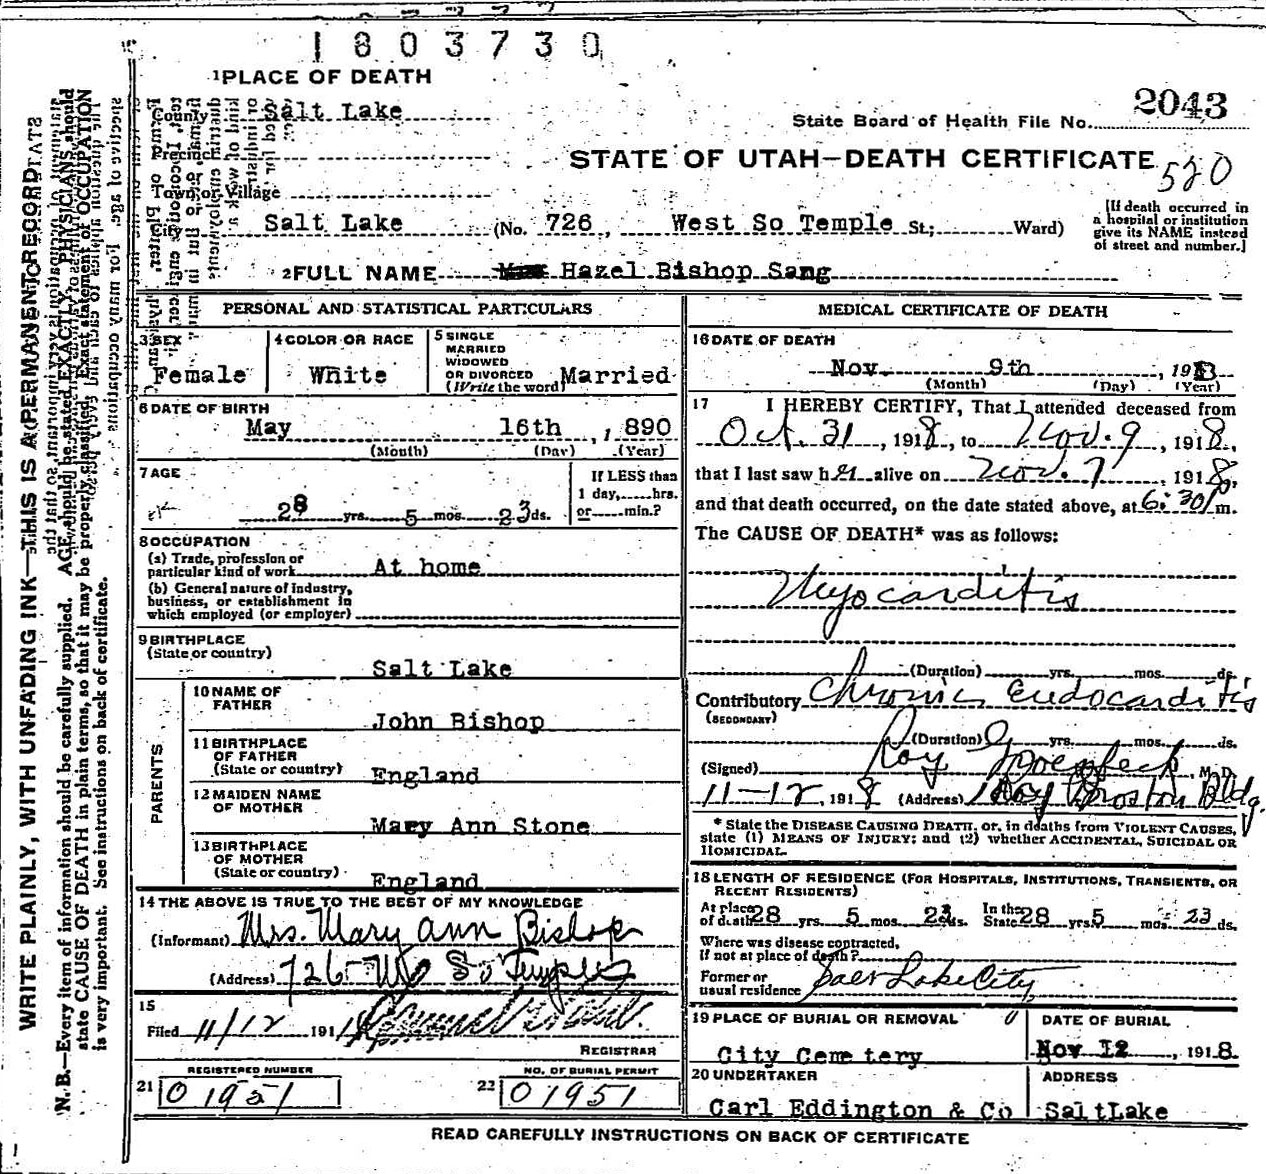 1803730
1 PLACE OF DEATH
County Salt Lake
2043
State Board of Health File No.
Precinct
STATE OF UTAH—DEATH CERTIFICATE
520
Town or Village
City Salt Lake (No. 726, West So Temple St; Ward)
[If death occurred in
a hospital or institution
give its NAME instead
of street and number.]
2 FULL NAME Hazel Bishop Sang
PERSONAL AND STATISTICAL PARTICULARS
3 SEX
Female
4 COLOR OR RACE
White
5 SINGLE
MARRIED
WIDOWED
OR DIVORCED
(Write the word) Married
6 DATE OF BIRTH
May 16th, 1890
(Month) (Day) (Year)
7 AGE
28 yrs. 5 mos. 23 ds.
If LESS than
1 day, hrs.
or min.?
8 OCCUPATION
(a) Trade, profession or
particular kind of work At home
(b) General nature of industry,
business, or establishment in
which employed (or employer)
9 BIRTHPLACE
(State or country)
Salt Lake
PARENTS
10 NAME OF
FATHER
John Bishop
11 BIRTHPLACE
OF FATHER
(State or country) England
12 MAIDEN NAME
OF MOTHER
Mary Ann Stone
13 BIRTHPLACE
OF MOTHER
(State or country) England
14 THE ABOVE IS TRUE TO THE BEST OF MY KNOWLEDGE
(Informant) Mrs. Mary Ann Bishop
(Address) 726 W So Temple
15
Filed 11/12 191
REGISTRAR
REGISTERED NUMBER
21 01951
NO. OF BURIAL PERMIT
22 01951
MEDICAL CERTIFICATE OF DEATH
16 DATE OF DEATH
Nov. 9th, 191
(Month) (Day) (Year)
17 I HEREBY CERTIFY, That I attended deceased from
Oct. 31, 1918, to Nov. 9, 1918,
that I last saw her alive on Nov. 7, 1918,
and that death occurred, on the date stated above, at 6:30 m.
The CAUSE OF DEATH* was as follows:
Myocarditis
(Duration) yrs. mos. ds.
Contributory Chronic Endocarditis
(SECONDARY)
(Duration) yrs. mos. ds.
(Signed) Roy M.D.
11-12, 1918 (Address) Boston Bldg.
* State the DISEASE CAUSING DEATH, or, in deaths from VIOLENT CAUSES,
state (1) MEANS OF INJURY; and (2) whether ACCIDENTAL, SUICIDAL OR
HOMICIDAL.
18 LENGTH OF RESIDENCE (FOR HOSPITALS, INSTITUTIONS, TRANSIENTS, OR
RECENT RESIDENTS)
At place
of death 28 yrs. 5 mos. 23 ds. In the
State 28 yrs 5 mos. 23 ds.
Where was disease contracted,
if not at place of death?
Former or
usual residence Salt Lake City
19 PLACE OF BURIAL OR REMOVAL
City Cemetery
DATE OF BURIAL
Nov 12, 1918.
20 UNDERTAKER
Carl Eddington & Co
ADDRESS
Salt Lake
READ CAREFULLY INSTRUCTIONS ON BACK OF CERTIFICATE
WRITE PLAINLY, WITH UNFADING INK—THIS IS A PERMANENT RECORD
N. B.—Every item of information should be carefully supplied. AGE should be stated EXACTLY. PHYSICIANS should
state CAUSE OF DEATH in plain terms, so that it may be properly classified. Exact statement of OCCUPATION
is very important. See instructions on back of certificate.